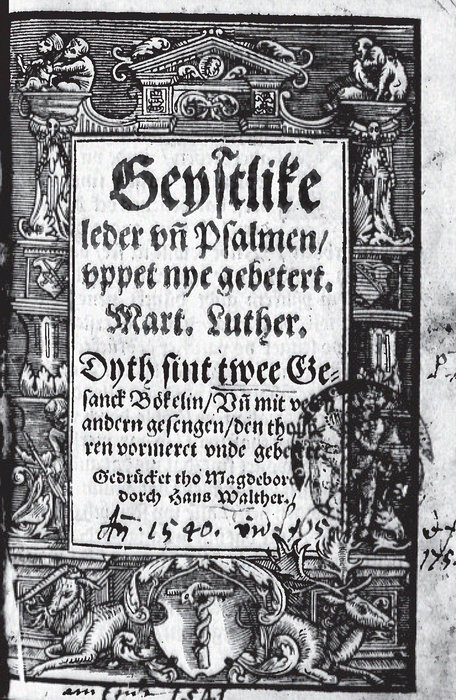 Geystlike
leder vñ Psalmen/
vppet nye gebetert.
Mart. Luther.
Dyth sint twee Ge⸗
sanck Bökelin/Vñ mit
andern gesengen/den
ren vormeret vnde
Gedrücket tho Magdeborch
dorch Hans Walther.
1540.